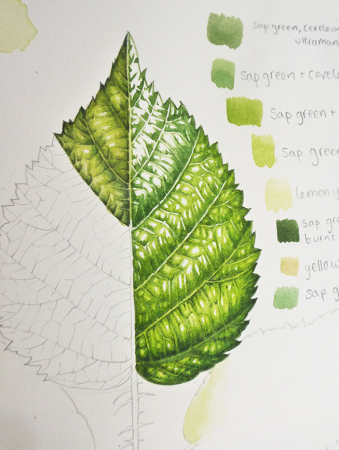 Sap green, Cerele
ultramar
Sap green + Cerele
Sap green +
Sap green
lemon y
Sap gre
burnt
yellow
Sap g